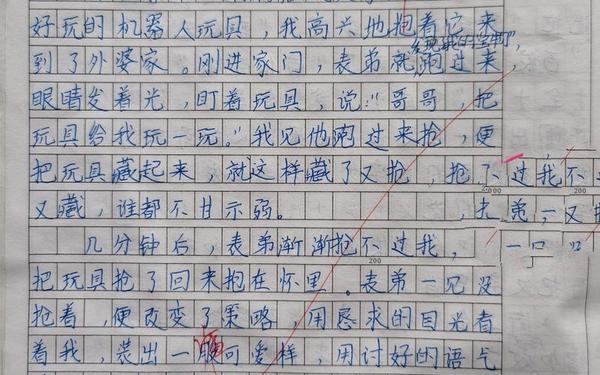 好玩的机器人玩具，我高兴地抱着它来
到了外婆家。刚进家门，表弟就跑过来，
眼睛发着光，盯着玩具，说："哥哥，把
玩具给我玩一玩。"我见他跑过来抢，便
把玩具藏起来，就这样藏了又抢，抢不过我不
又藏，谁都不甘示弱。
几分钟后，表弟渐渐抢不过我，
把玩具抢了回来抱在怀里。表弟一见没
200
抢着，便改变了策略，用恳求的目光看
着我，装出一 可爱样，用讨好的语气